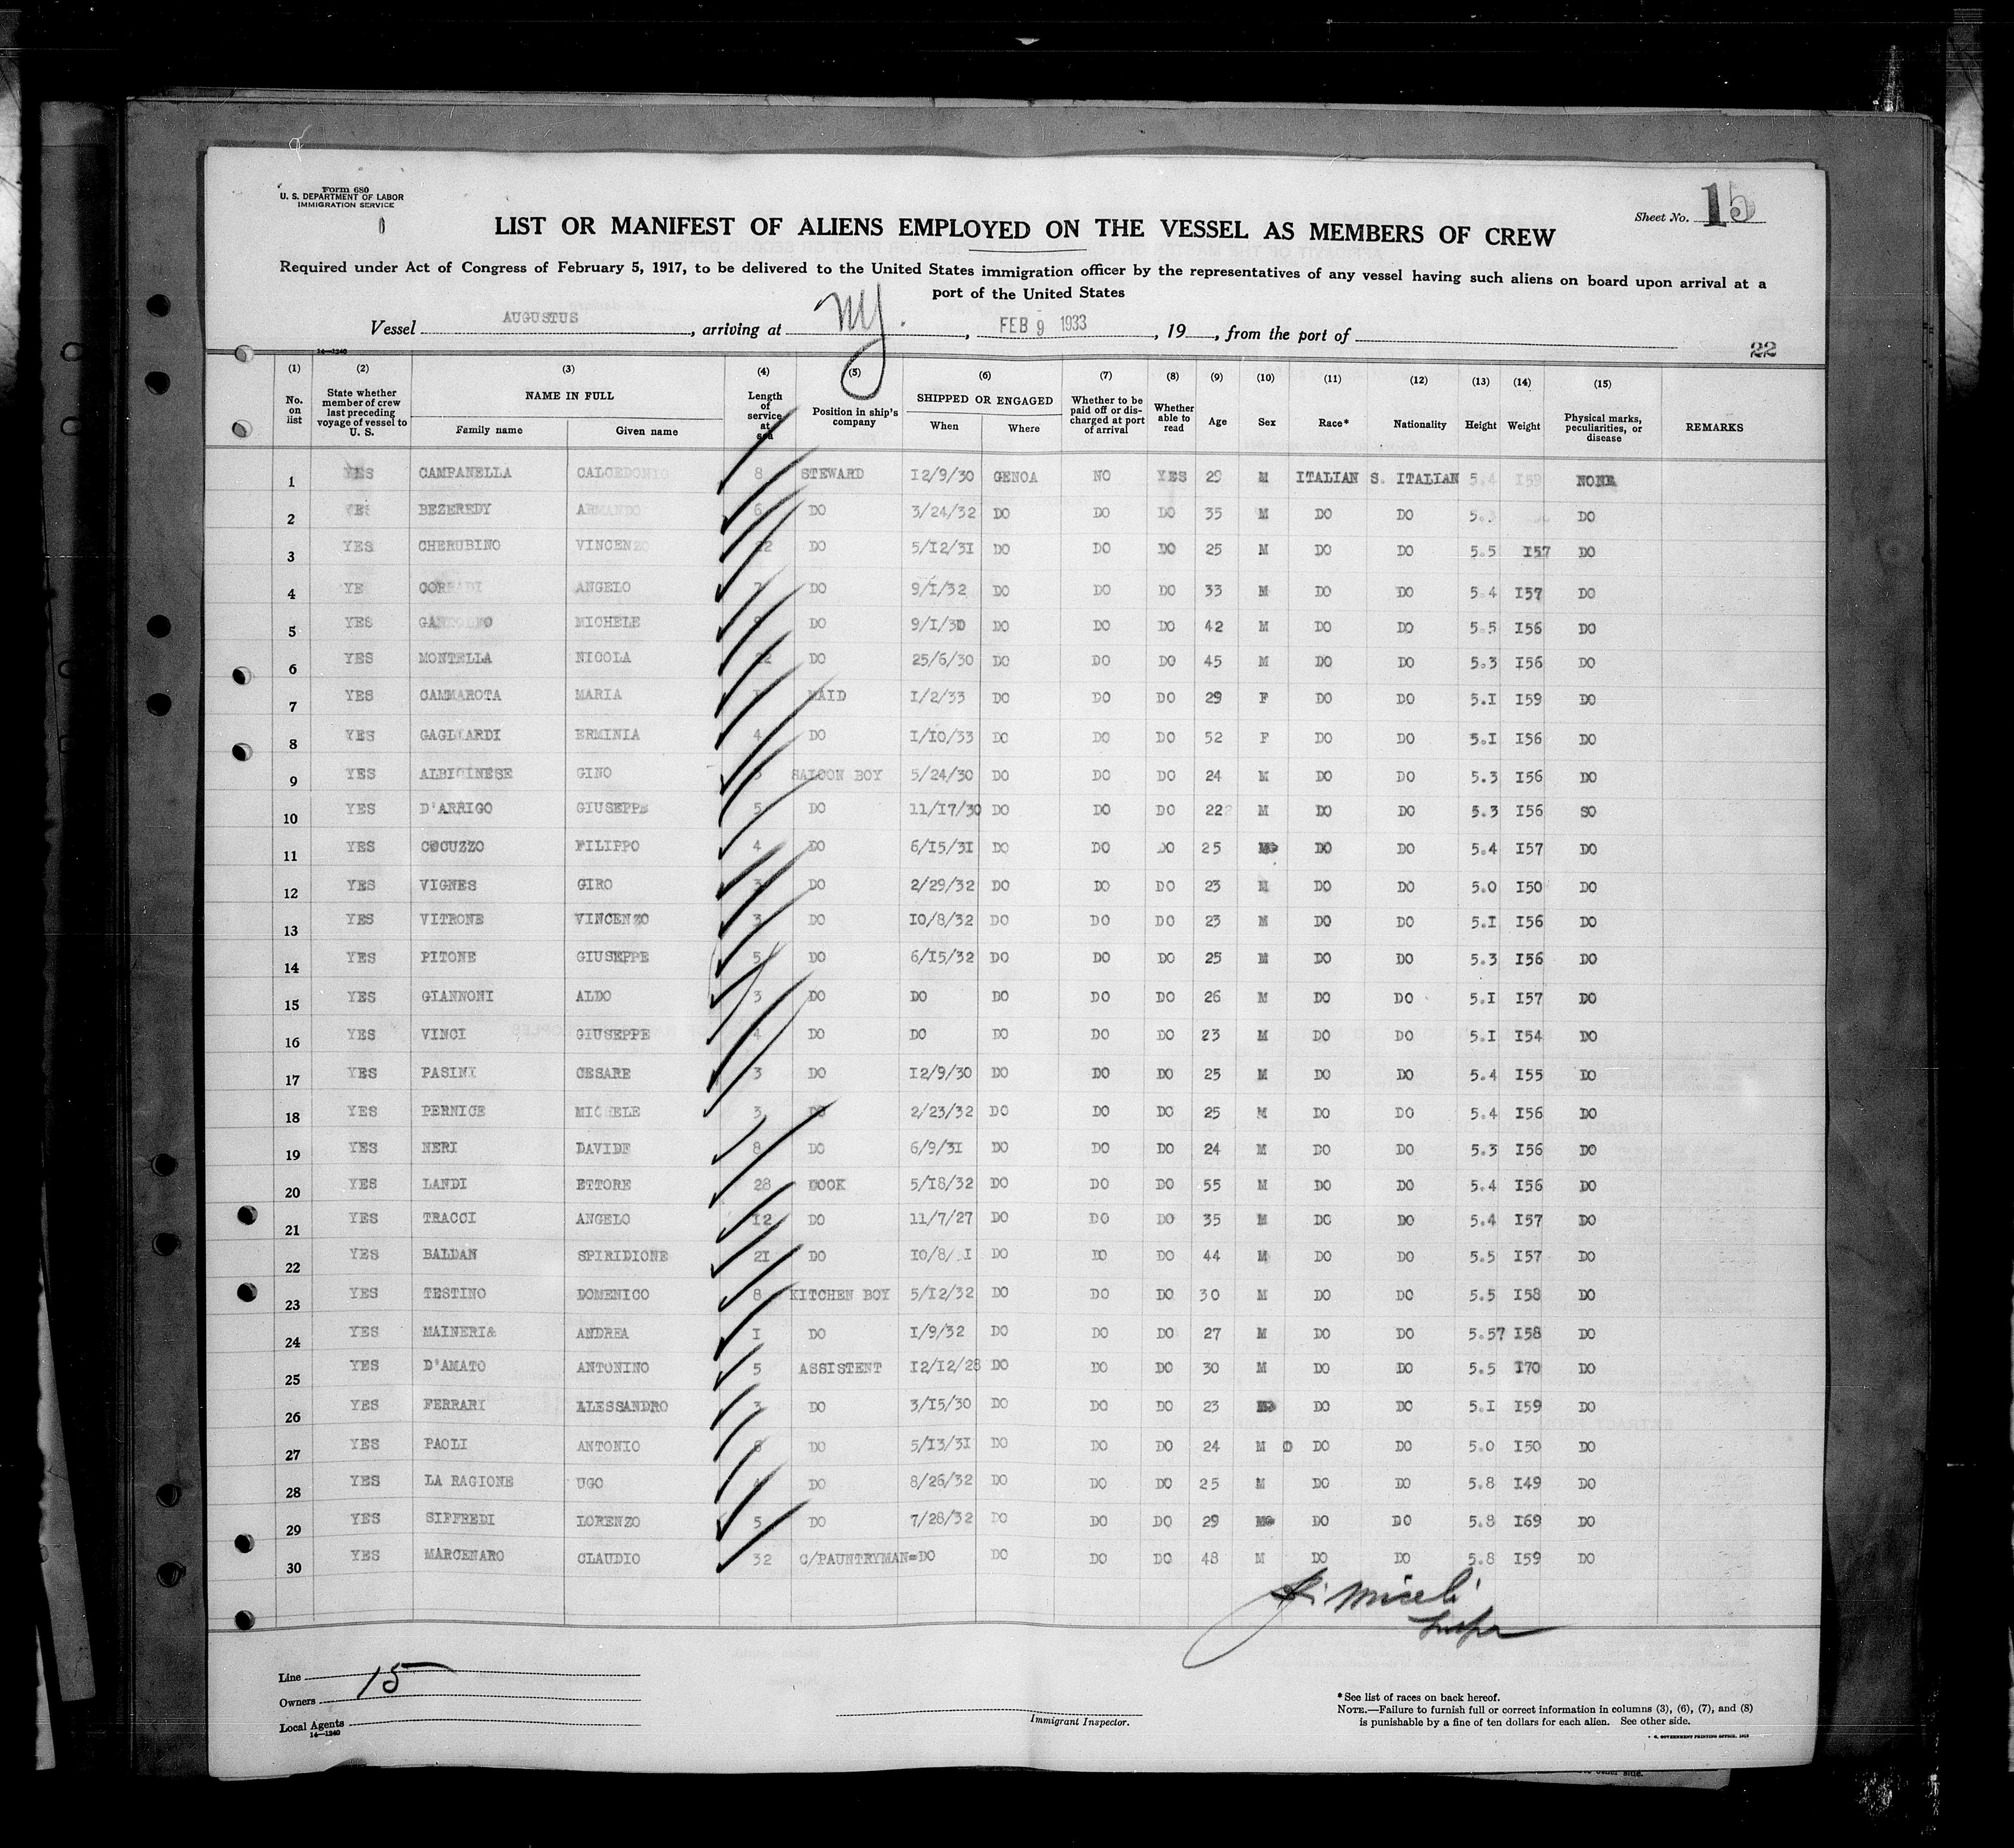 Form 680
U. S. DEPARTMENT OF LABOR
IMMIGRATION SERVICE
Sheet No. 15
LIST OR MANIFEST OF ALIENS EMPLOYED ON THE VESSEL AS MEMBERS OF CREW
Required under Act of Congress of February 5, 1917, to be delivered to the United States immigration officer by the representatives of any vessel having such aliens on board upon arrival at a
port of the United States
Vessel AUGUSTUS, arriving at NY., FEB 9 1933, 19, from the port of
22
14—1240
(1) No. on list (2) State whether member of crew last preceding voyage of vessel to U. S. (3) NAME IN FULL Family name Given name (4) Length of service at sea (5) Position in ship's company (6) SHIPPED OR ENGAGED When Where (7) Whether to be paid off or discharged at port of arrival (8) Whether able to read (9) Age (10) Sex (11) Race* (12) Nationality (13) Height (14) Weight (15) Physical marks, peculiarities, or disease REMARKS
1 YES CAMPANELLA CALCEDONIO 8 STEWARD 12/9/30 GENOA NO YES 29 M ITALIAN S. ITALIAN 5.4 159 NONE
2 YES BEZEREDY ARMANDO 6 DO 3/24/32 DO DO DO 35 M DO DO DO
3 YES CHERUBINO VINCENZO DO 5/12/31 DO DO DO 25 M DO DO 5.5 157 DO
4 YE CORRADI ANGELO 7 DO 9/1/32 DO DO DO 33 M DO DO 5.4 157 DO
5 YES DO 9/1/30 DO DO DO 42 M DO DO 5.5 156 DO
MICHELE
6 YES MONTELLA NICOLA DO 25/6/30 DO DO DO 45 M DO DO 5.3 156 DO
7 YES CAMMAROTA MARIA MAID 1/2/33 DO DO DO 29 F DO DO 5.1 159 DO
8 YES GAGLIARDI ERMINIA 4 DO 1/10/33 DO DO DO 52 F DO DO 5.1 156 DO
9 YES ALBIGINESE GINO SALOON BOY 5/24/30 DO DO DO 24 M DO DO 5.3 156 DO
10 YES D'ARRIGO GIUSEPPE 5 DO 11/17/30 DO DO DO 22 M DO DO 5.3 156 SO
11 YES COCUZZO FILIPPO 4 DO 6/15/31 DO DO DO 25 M DO DO 5.4 157 DO
12 YES VIGNES GIRO DO 2/29/32 DO DO DO 23 M DO DO 5.0 150 DO
13 YES VITRONE VINCENZO 3 DO 10/8/32 DO DO DO 23 M DO DO 5.1 156 DO
14 YES PITONE GIUSEPPE 5 DO 6/15/32 DO DO DO 25 M DO DO 5.3 156 DO
15 YES GIANNONI ALDO 3 DO DO DO DO DO 26 M DO DO 5.1 157 DO
16 YES VINCI GIUSEPPE 4 DO DO DO DO DO 23 M DO DO 5.1 154 DO
17 YES PASINI CESARE 3 DO 12/9/30 DO DO DO 25 M DO DO 5.4 155 DO
18 YES PERNICE MICHELE 3 DO 2/23/32 DO DO DO 25 M DO DO 5.4 156 DO
19 YES NERI DAVIDE 8 DO 6/9/31 DO DO DO 24 M DO DO 5.3 156 DO
20 YES LANDI ETTORE 28 COOK 5/18/32 DO DO DO 55 M DO DO 5.4 156 DO
21 YES TRACCI ANGELO 12 DO 11/7/27 DO DO DO 35 M DO DO 5.4 157 DO
22 YES BALDAN SPIRIDIONE 21 DO 10/8/ 1 DO DO DO 44 M DO DO 5.5 157 DO
23 YES TESTINO DOMENICO 8 KITCHEN BOY 5/12/32 DO DO DO 30 M DO DO 5.5 158 DO
24 YES MAINERI& ANDREA 1 DO 1/9/32 DO DO DO 27 M DO DO 5.57 158 DO
25 YES D'AMATO ANTONINO 5 ASSISTENT 12/12/28 DO DO DO 30 M DO DO 5.5 170 DO
26 YES FERRARI ALESSANDRO 3 DO 3/15/30 DO DO DO 23 M DO DO 5.1 159 DO
27 YES PAOLI ANTONIO 6 DO 5/13/31 DO DO DO 24 M DO DO 5.0 150 DO
28 YES LA RAGIONE UGO 4 DO 8/26/32 DO DO DO 25 M DO DO 5.8 149 DO
29 YES SIFFREDI LORENZO 5 DO 7/28/32 DO DO DO 29 M DO DO 5.8 169 DO
30 YES MARCENARO CLAUDIO 32 C/PAUNTRYMAN=DO DO DO DO 48 M DO DO 5.8 159 DO
Miseli
Line
Owners 15
Local Agents
14—1240
Immigrant Inspector.
* See list of races on back hereof.
NOTE.—Failure to furnish full or correct information in columns (3), (6), (7), and (8)
is punishable by a fine of ten dollars for each alien. See other side.